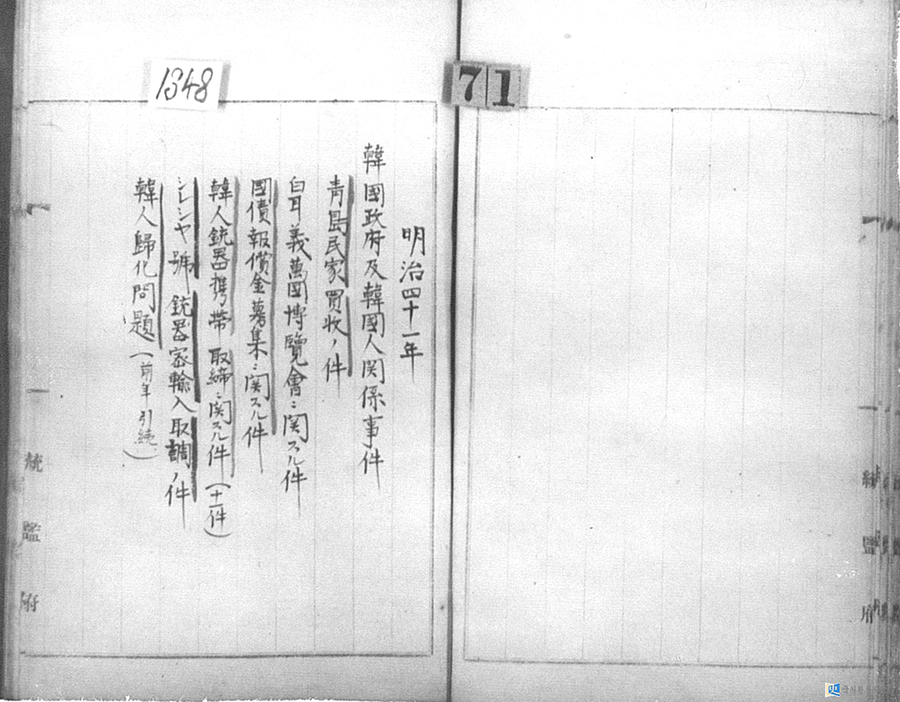 1348
71
明治四十一年
韓國政府及韓國人関係事件
青島民家買收ノ件
白耳義萬國博覽會ニ関スル件
國債報償金募集ニ関スル件
韓人銃器携帯取締ニ関スル件(十一件)
シレシヤ號銃器密輸入取調ノ件
韓人歸化問題(前年引続)
統監府
統監府